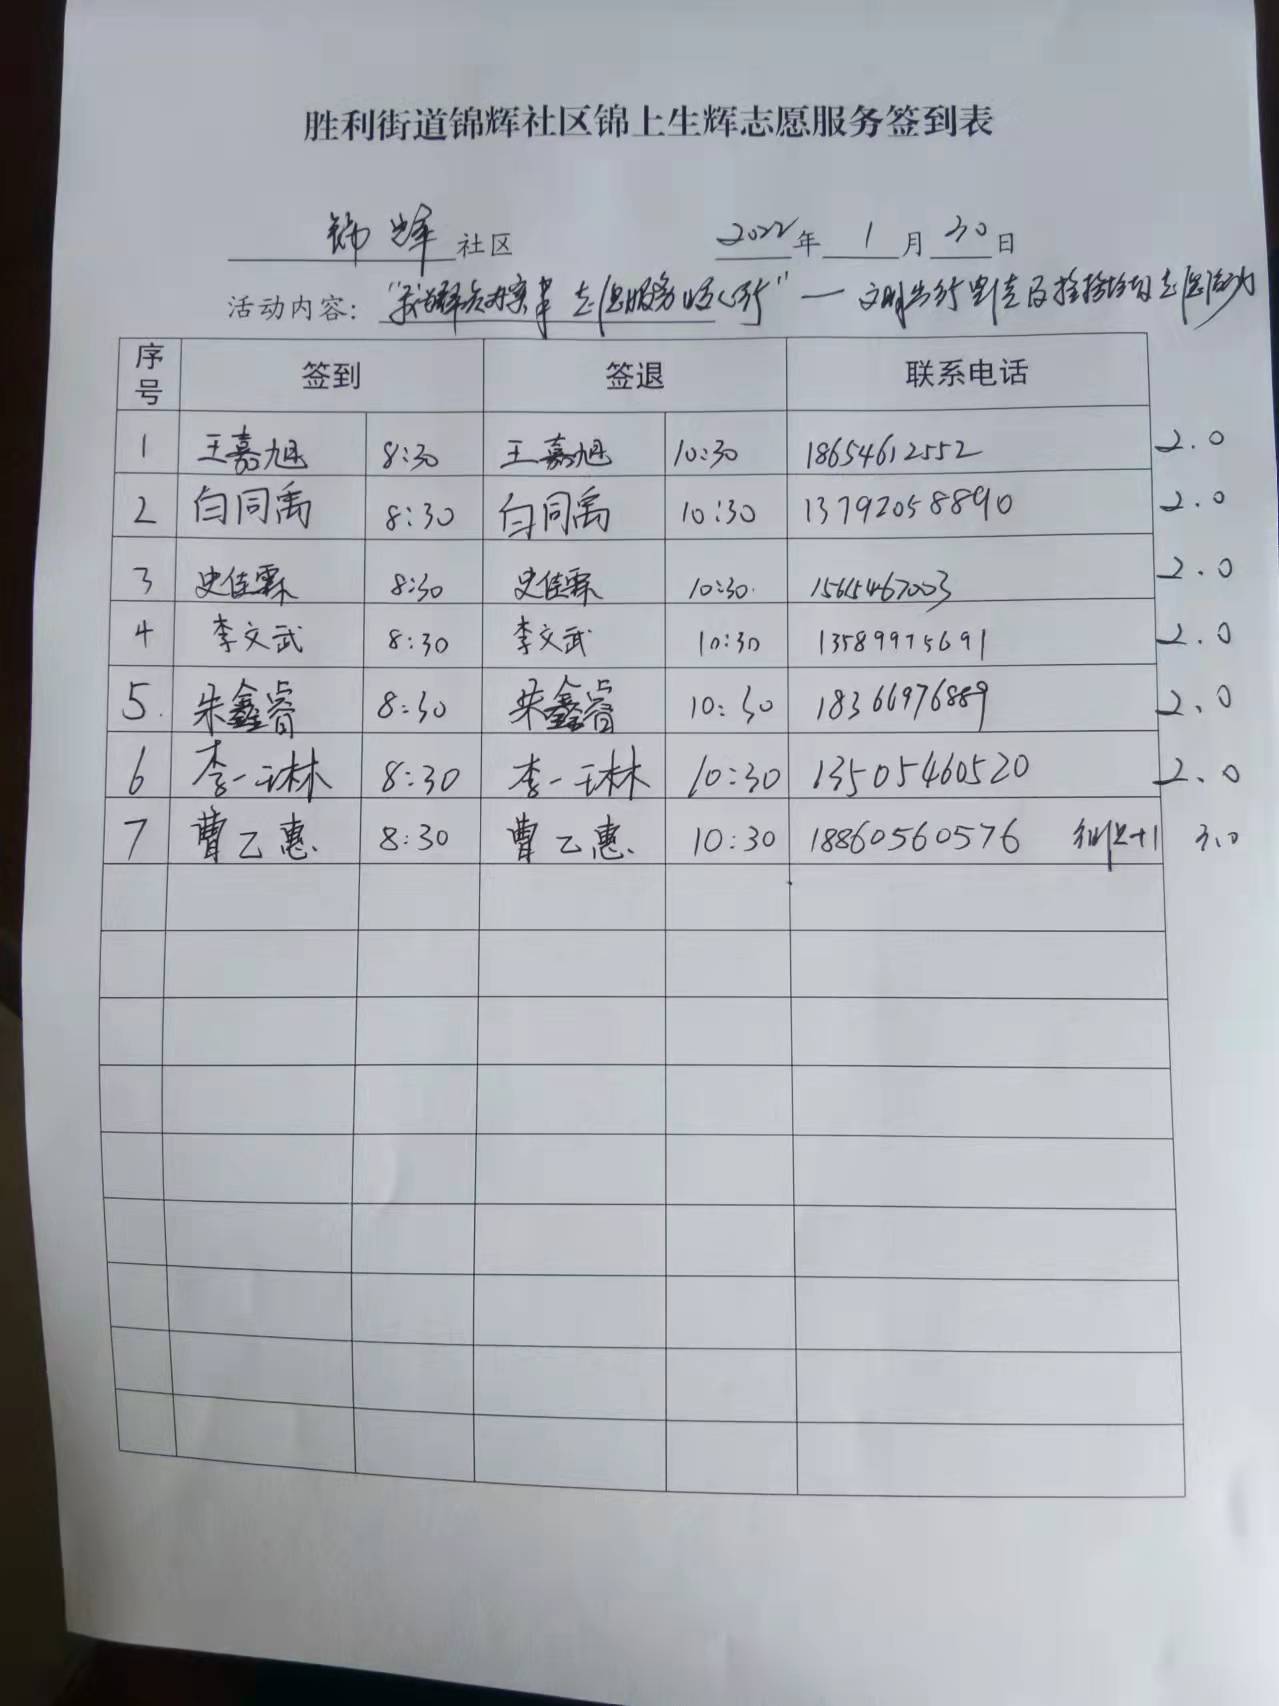 胜利街道锦辉社区锦上生辉志愿服务签到表
锦辉社区 2022年1月30日
活动内容：“我为群众办实事 志愿服务暖心行”—文明出行宣传及捡拾垃圾志愿活动
序号 签到 签退 联系电话
1 王嘉旭 8:30 王嘉旭 10:30 18654612552 2.0
2 白同禹 8:30 白同禹 10:30 13792058890 2.0
3 史佳霖 8:30 史佳霖 10:30 15615467003 2.0
4 李文武 8:30 李文武 10:30 13589975691 2.0
5. 朱鑫睿 8:30 朱鑫睿 10:30 18366976889 2.0
6 李一琳 8:30 李一琳 10:30 13505460520 2.0
7 曹乙惠 8:30 曹乙惠 10:30 18860560576 +1 3.0